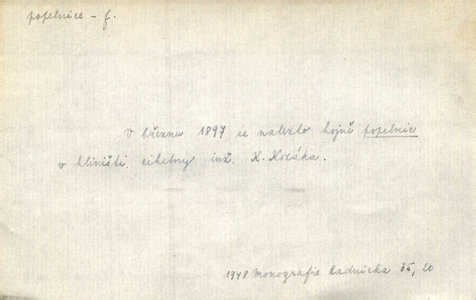 popelnice - f.
V březnu 1897 se nalezlo hojně popelnic
v hliništi cihelny inž. K. Kozáka.
1948 Monografie Radnicka 35, 20